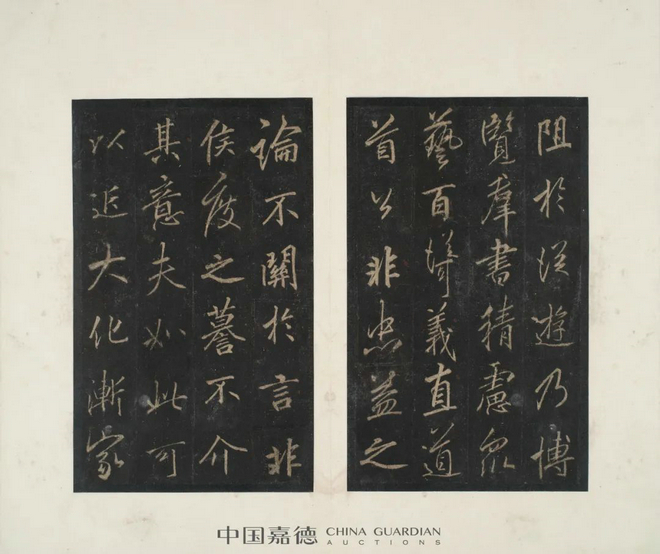 阻於從遊乃博
覽羣書精慮眾
藝百義直道
首公非忠益之
論不關於言非
侯度之謩不介
其意夫如此可
以近大化漸家
中国嘉德 CHINA GUARDIAN
AUCTIONS